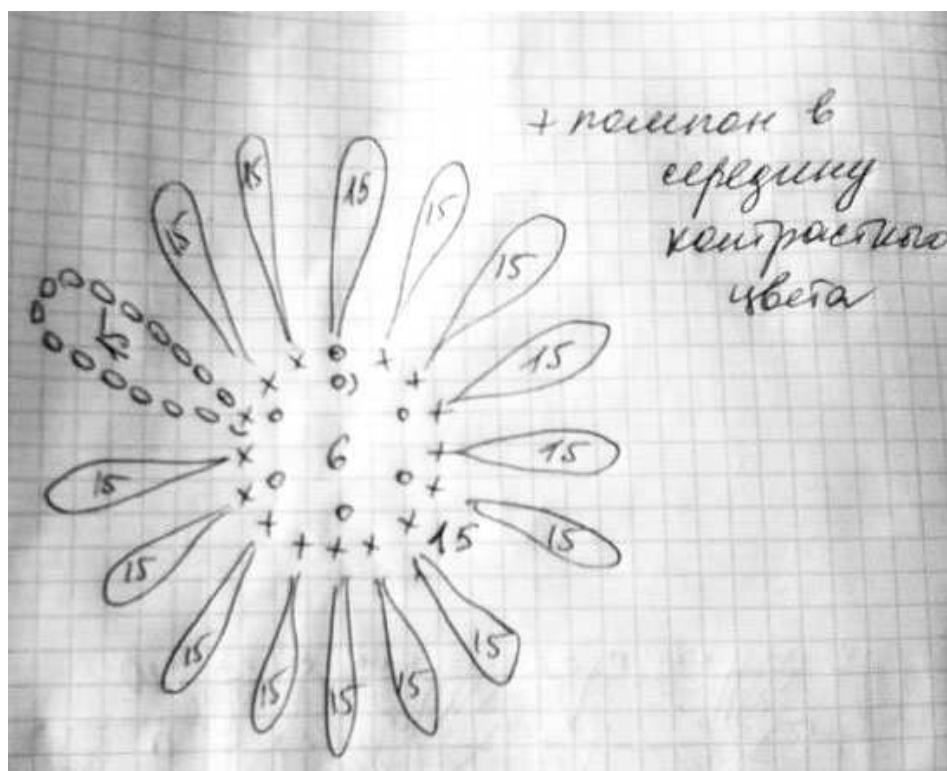 + помпон в
середину
контрастного
цвета
15
15
15
15
15
15
15
15
6
15
15
15
15
15
15
15
15
15
15